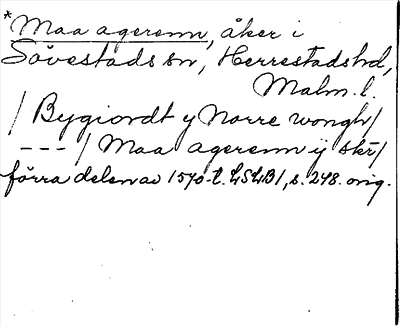 *Maa agerenn, åker i
Sövestads sn, Herrestads hd,
Malm. l.
/ Bygiordt y Norre wongh/
--- / Maa agerenn ij skr/
förra delen av 1570-t. LSLB1, s. 248. orig.